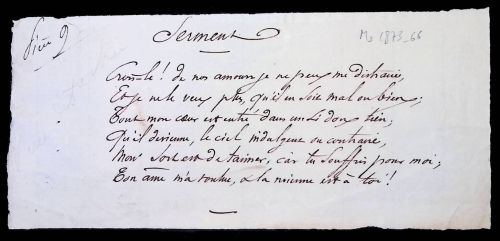 Pièce 9
Serment
Ms 1873-66
Crois-le ! de nos amours je ne peux me distraire,
Et je ne le veux plus, qu'il en soit mal ou bien ;
Tout mon cœur est entré dans un si doux lien ;
Qu'il devienne, le ciel indulgent ou contraire,
Mon sort est de t'aimer, car tu souffris pour moi ;
Ton âme m'a voulue, & la mienne est à toi !